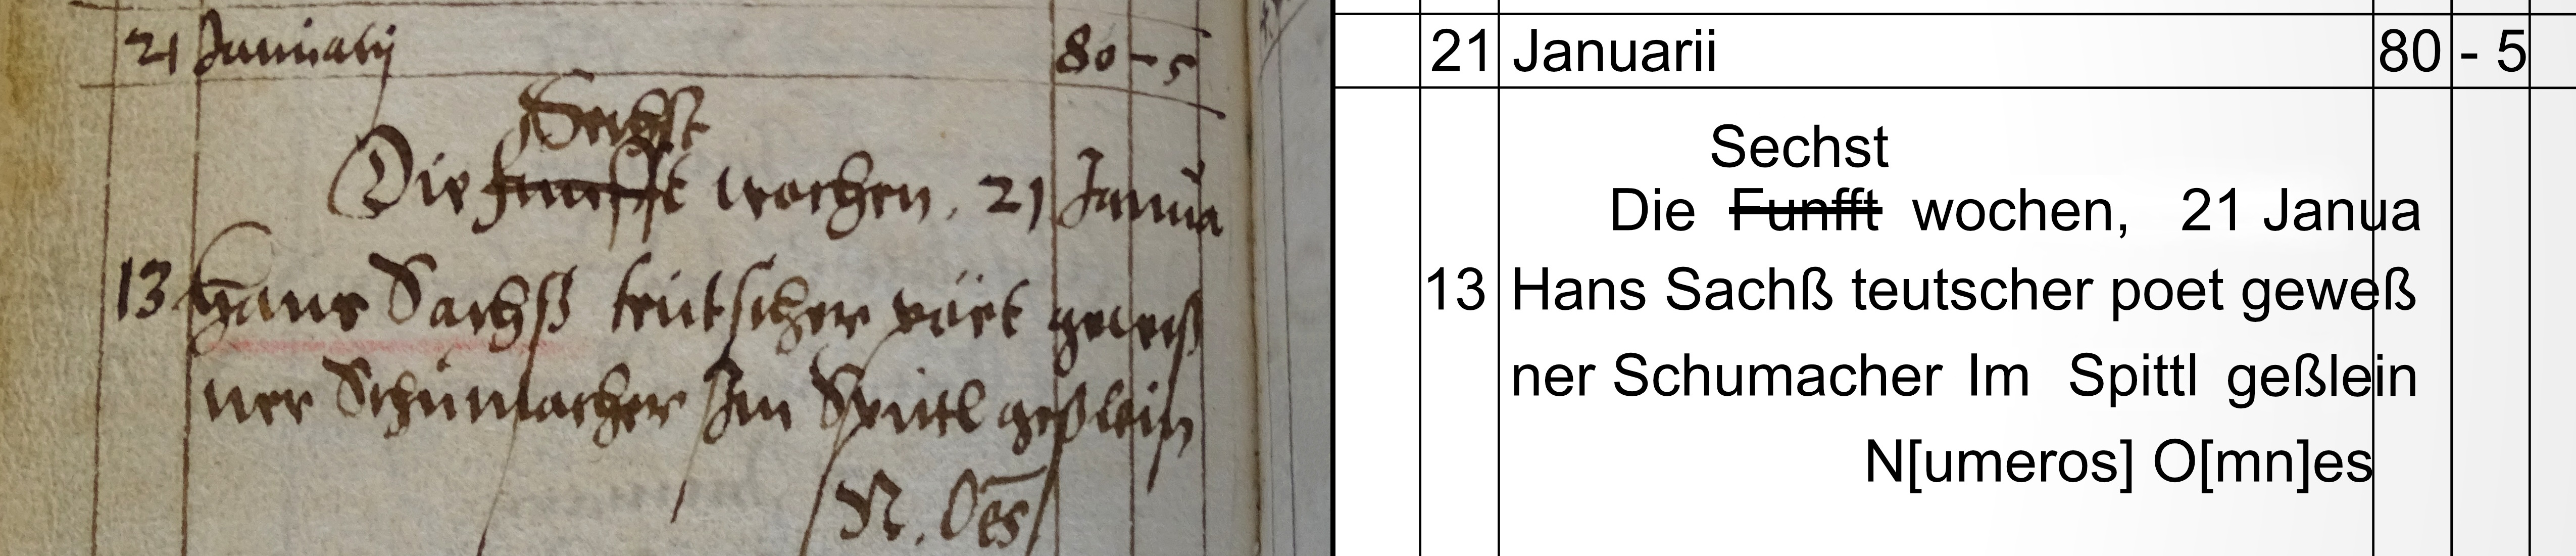 21 Januarij 80 - 5
Sechst
Die Funfft wochen, 21 Janua
13 Hans Sachß teutscher poet geweß
ner Schumacher Im Spittl geßlein
N. Oes
21 Januarii 80 - 5
Sechst
Die Funfft wochen, 21 Janua
13 Hans Sachß teutscher poet geweß
ner Schumacher Im Spittl geßlein
N[umeros] O[mn]es